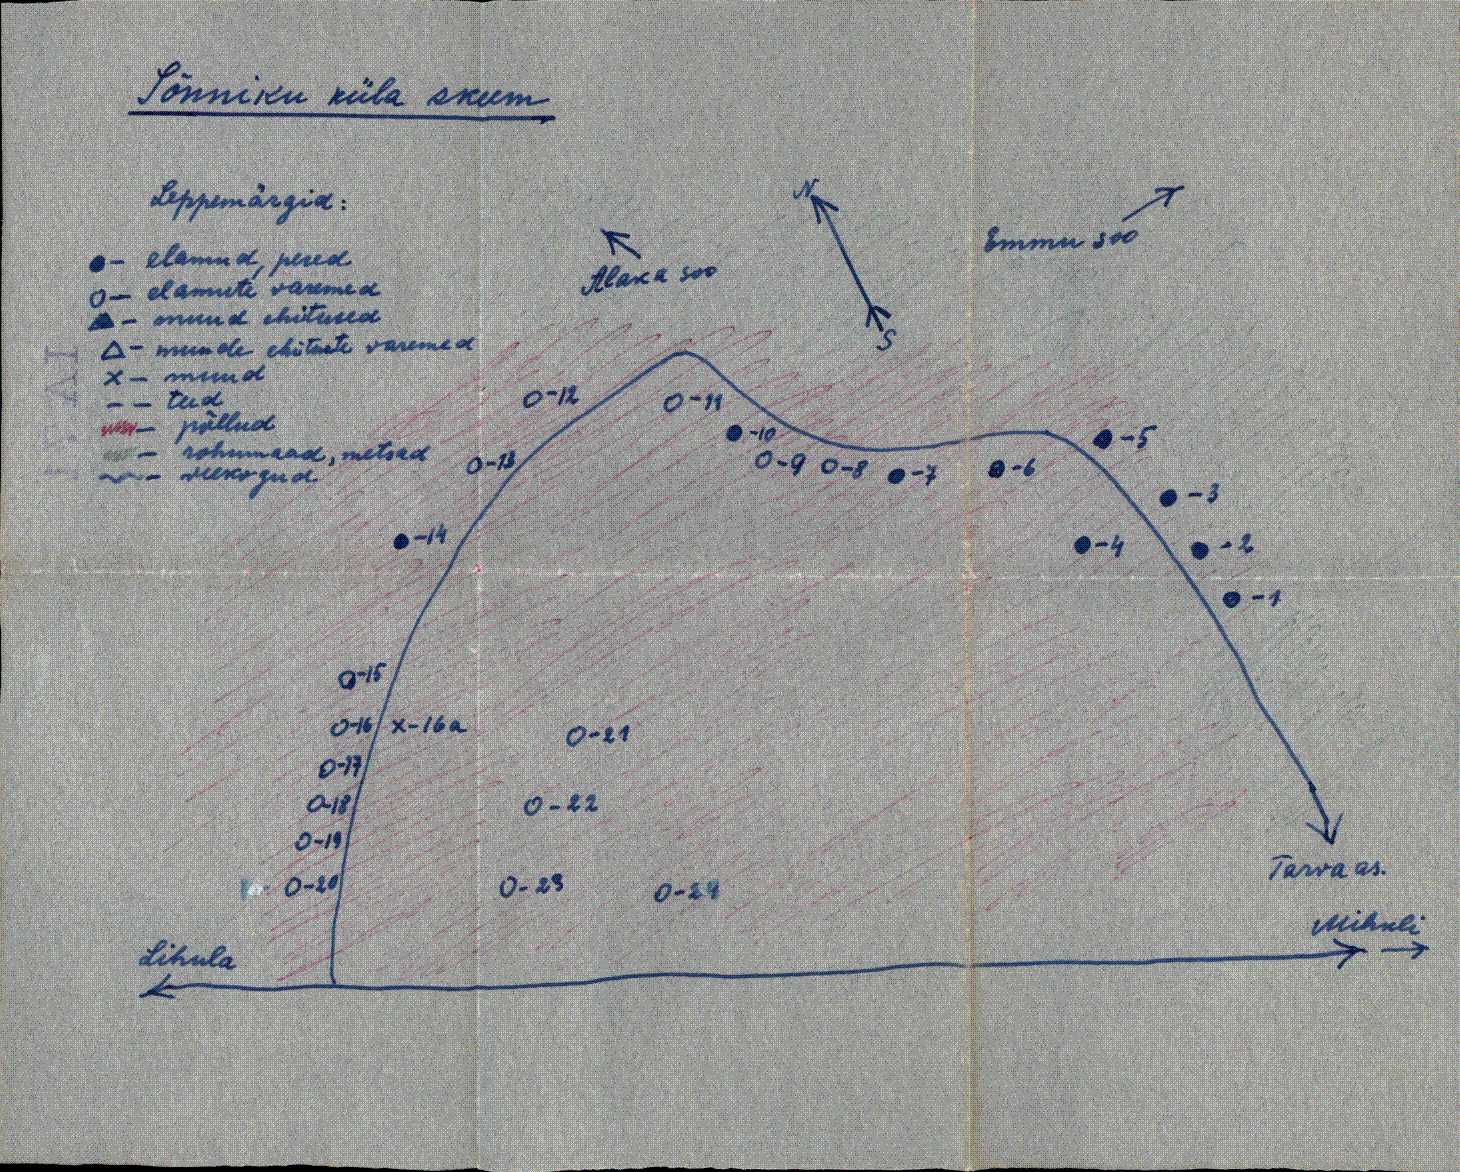 Sõnniku küla skeem
Leppemärgid:
- elamud, pered
- elamute varemed
- muud ehitused
- muude ehituste varemed
x - muud
-- teed
- põllud
- rohumaad, metsad
- veekogud
N
S
Alaka soo
Emmu soo
0-12
0-11
-10
0-9
0-8
-7
-6
-5
-3
-4
-2
-1
0-13
-14
0-15
0-16
x-16a
0-17
0-18
0-19
0-20
0-21
0-22
0-23
0-24
Tarva as.
Mihkli
Lihula